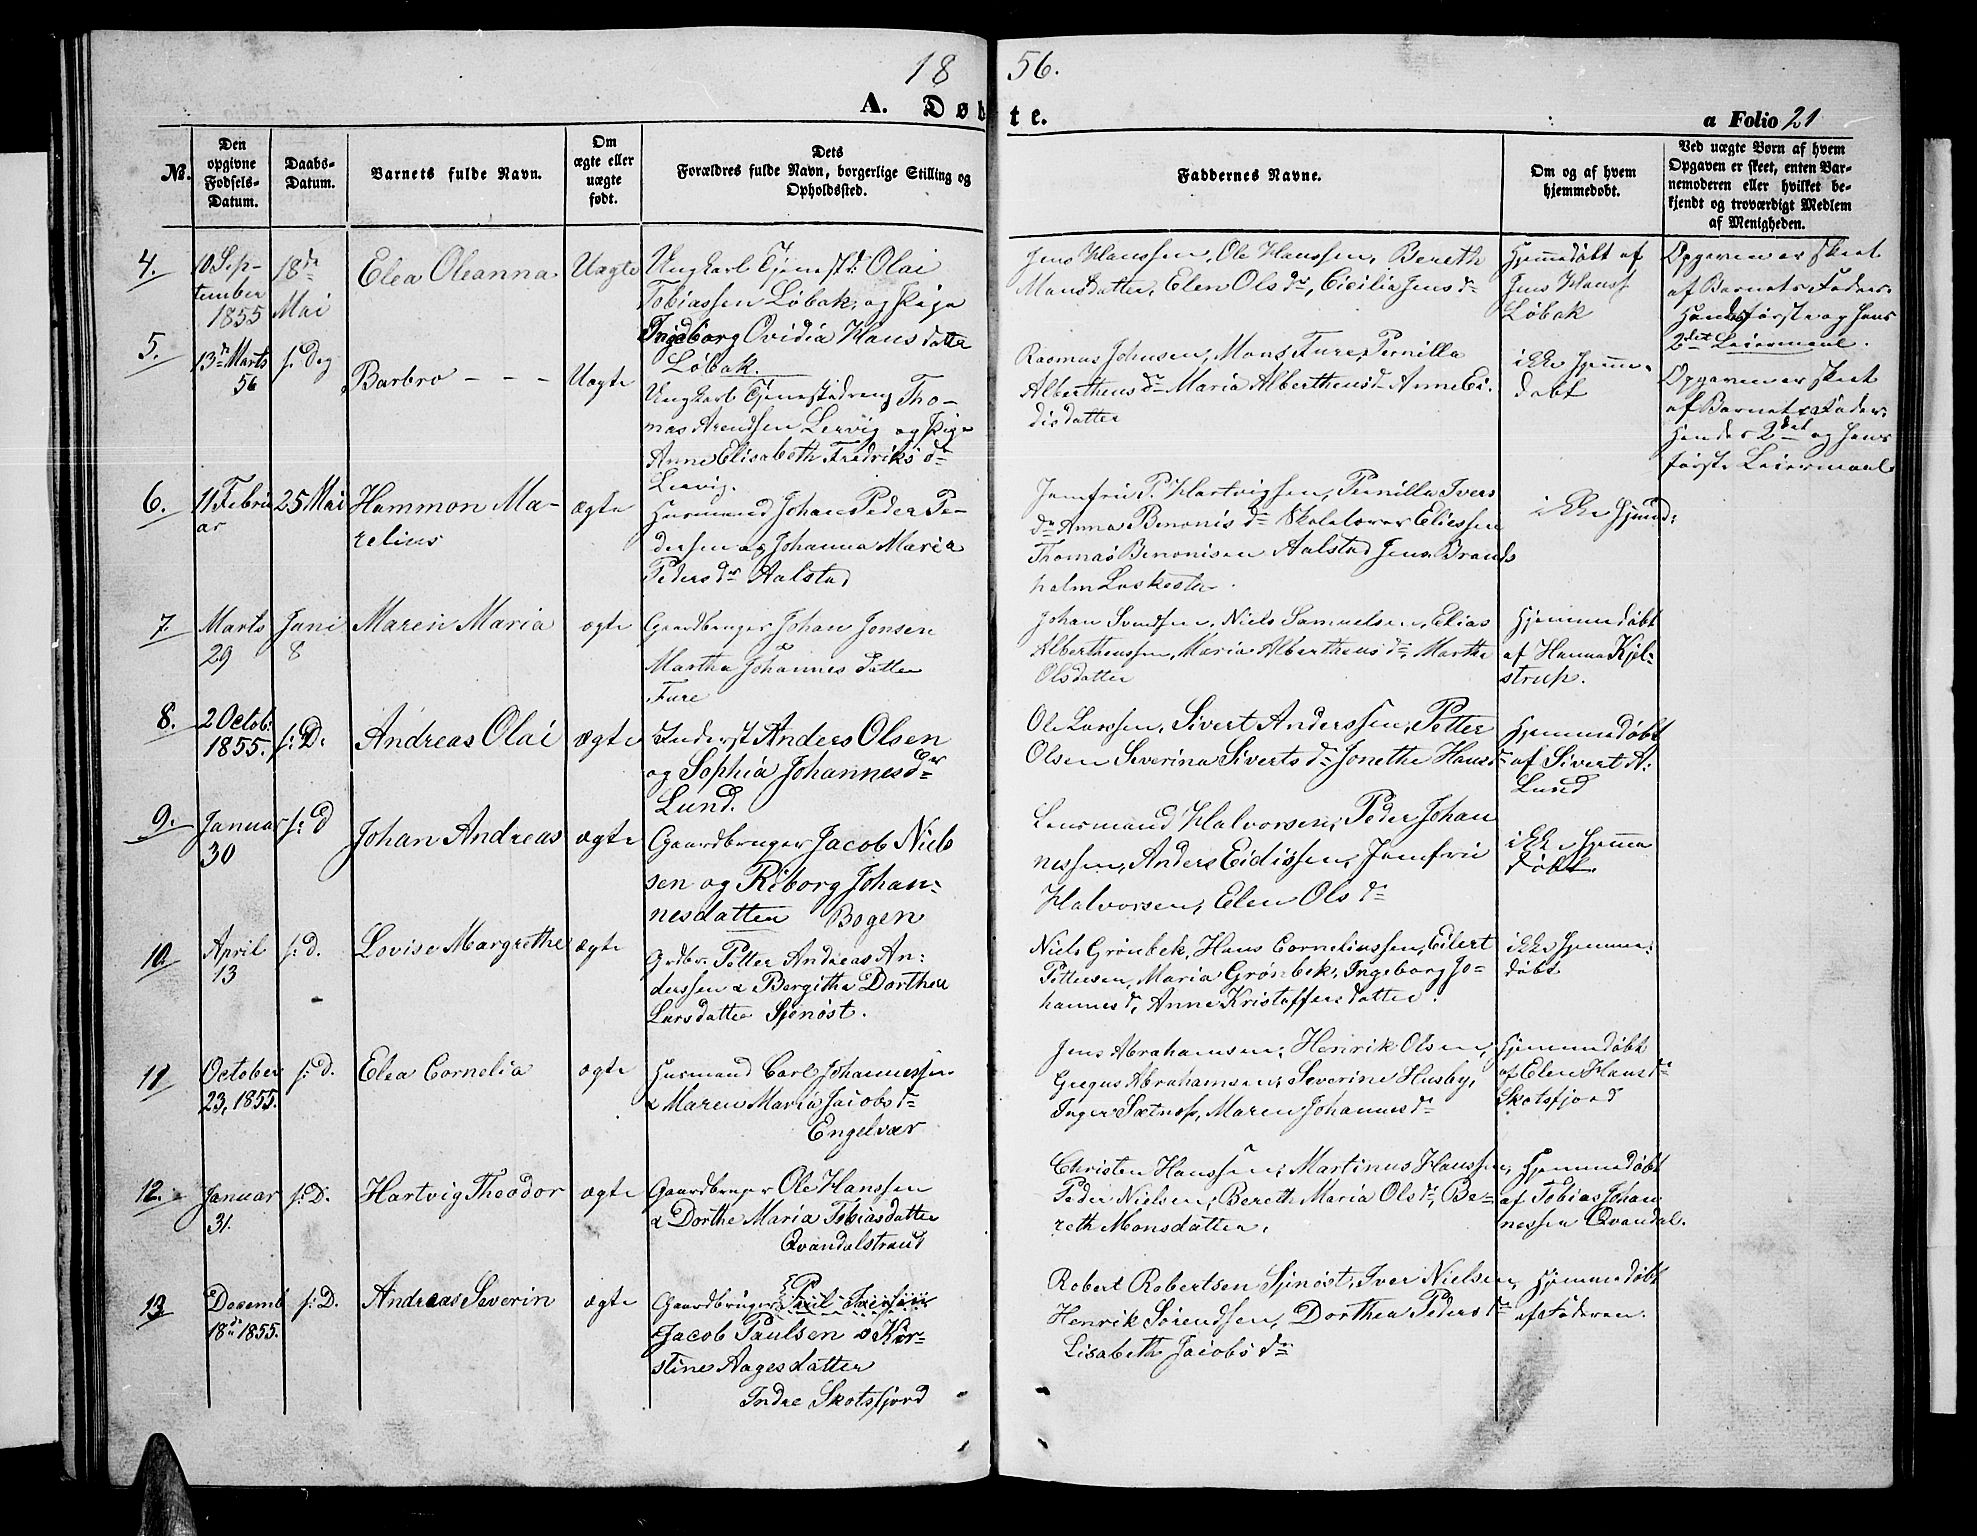 18 56.
A. Døbte.
a Folio 21
No.
Den opgivne Fødsels-Datum.
Daabs-Datum.
Barnets fulde Navn.
Om ægte eller uægte født.
Dets Forældres fulde Navn, borgerlige Stilling og Opholdssted.
Faddernes Navne.
Om og af hvem hjemmedøbt.
Ved uægte Børn af hvem Opgaven er skeet, enten Barnemoderen eller hvilket bekjendt og troværdigt Medlem af Menigheden.
4.
10 Sep-
tember
1855
18de
Mai
Elea Oleanna
Uægte
Ungkarl Tjenestd: Olai
Tobiassen Løbak, og Pige
Ingeborg Ovidia Hansdatter
Løbak.
Jens Hanssen, Ole Hanssen, Bereth
Monsdatter, Elen Olsdr, Cicilia Jensd
Hjemedøbt af
Jens Hanss
Løbak
Opgaven er skeet
af Barnets Fader.
Hendes første og hans
2det Leiermaal.
5.
13de Marts
56
s: Dag
Barbro - - -
Uægte
Ungkarl Tjenestedreng Tho-
mas Arentsen Lervig og Pige
Anne Elisabeth Fredriksdr
Lervig.
Rasmus Johnsen, Mons Fure, Pernilla
Alberthensdr Maria Alberthensd Anne Ei-
disdatter
ikke hjemme-
døbt
Opgaven er skeet
af Barnets Fader.
Hendes 2det og hans
første Leiermaal
6.
11 Febru
ar
25 Mai
Hammon Ma-
relius
ægte
Husmand Johan Peder Pe-
dersen og Johanna Maria
Pedersdr Aalstad
Jomfru P. Hartvigsen, Pernilla Ivers
dr Anna Benonisdr Skolelærer Eliessen
Thomas Benonisen Aalstad Jens Brands
holm
ikke hjemd:
7.
Marts
29
Juni
8
Maren Maria
ægte
Gaardbruger Johan Jonsen
Martha Johannesdatter
Fure
Johan Svendsen, Niels Samuelsen, Elias
Alberthenssen, Maria Alberthensdr, Marthe
Olsdatter
Hjemmedøbt
af Hanna Kjel-
strup.
8.
2 Octob:
1855.
s: D.
Andreas Olai
ægte
Inderst Anders Olsen
og Sophia Johannesdr
Lund.
Ole Larssen, Sivert Anderssen, Petter
Olsen Severina Sivertsdr Jonetha Hansdr
Hjemmedøbt
af Sivert A:
Lund
9.
Januar
30
s: D
Johan Andreas
ægte
Gaardbruger Jacob Niels
sen og Riborg Johan-
nesdatter Bogen
Lensmand Halvorsen, Peder Johan
nessen, Anders Eidissen, Jomfru
Halvorsen, Elen Olsdr
ikke hjemme
døbt.
10.
April
13
s: D.
Lovise Margrethe
ægte
Grdbr. Petter Andreas An-
derssen & Bergitha Dorthea
Larsdatter Sjønøst.
Niels Grønbek, Hans Corneliussen, Eilert
Pettersen, Maria Grønbek, Ingeborg Jo-
hannesd, Anne Kristoffersdatter.
ikke hjemme-
døbt
11
October
23, 1855.
s: D.
Elea Cornelia
ægte
Husmand Carl Johannessen
& Maren Maria Jacobsdr
Engelvær
Jens Abrahamsen, Henrik Olsen,
Gregus Abrahamsen, Severine Husby,
Inger Sætnes, Maren Johannesdr
Hjemmedøbt
af Elen Hansdr
Skotsfjord
12.
Januar
31.
s: D.
Hartvig Theodor
ægte
Gaardbruger Ole Hanssen
& Dorthe Maria Tobiasdatter
Qvandalstrand
Christen Hanssen, Martinus Hanssen,
Peder Nielsen, Bereth Maria Olsdr, Be-
reth Monsdatter.
Hjemmedøbt
af Tobias Johan
nessen Qvandal.
13
Desemb
18de 1855.
s: D.
Andreas Severin
ægte
Gaardbruger
Jacob Paulsen & Kir-
stine Aagesdatter
Indre Skotsfjord
Robert Robertsen Sjønøst, Iver Nielsen,
Henrik Sørendsen, Dorthea Pedersdr
Lisabeth Jacobsdr
Hjemmedøbt
af Faderen.